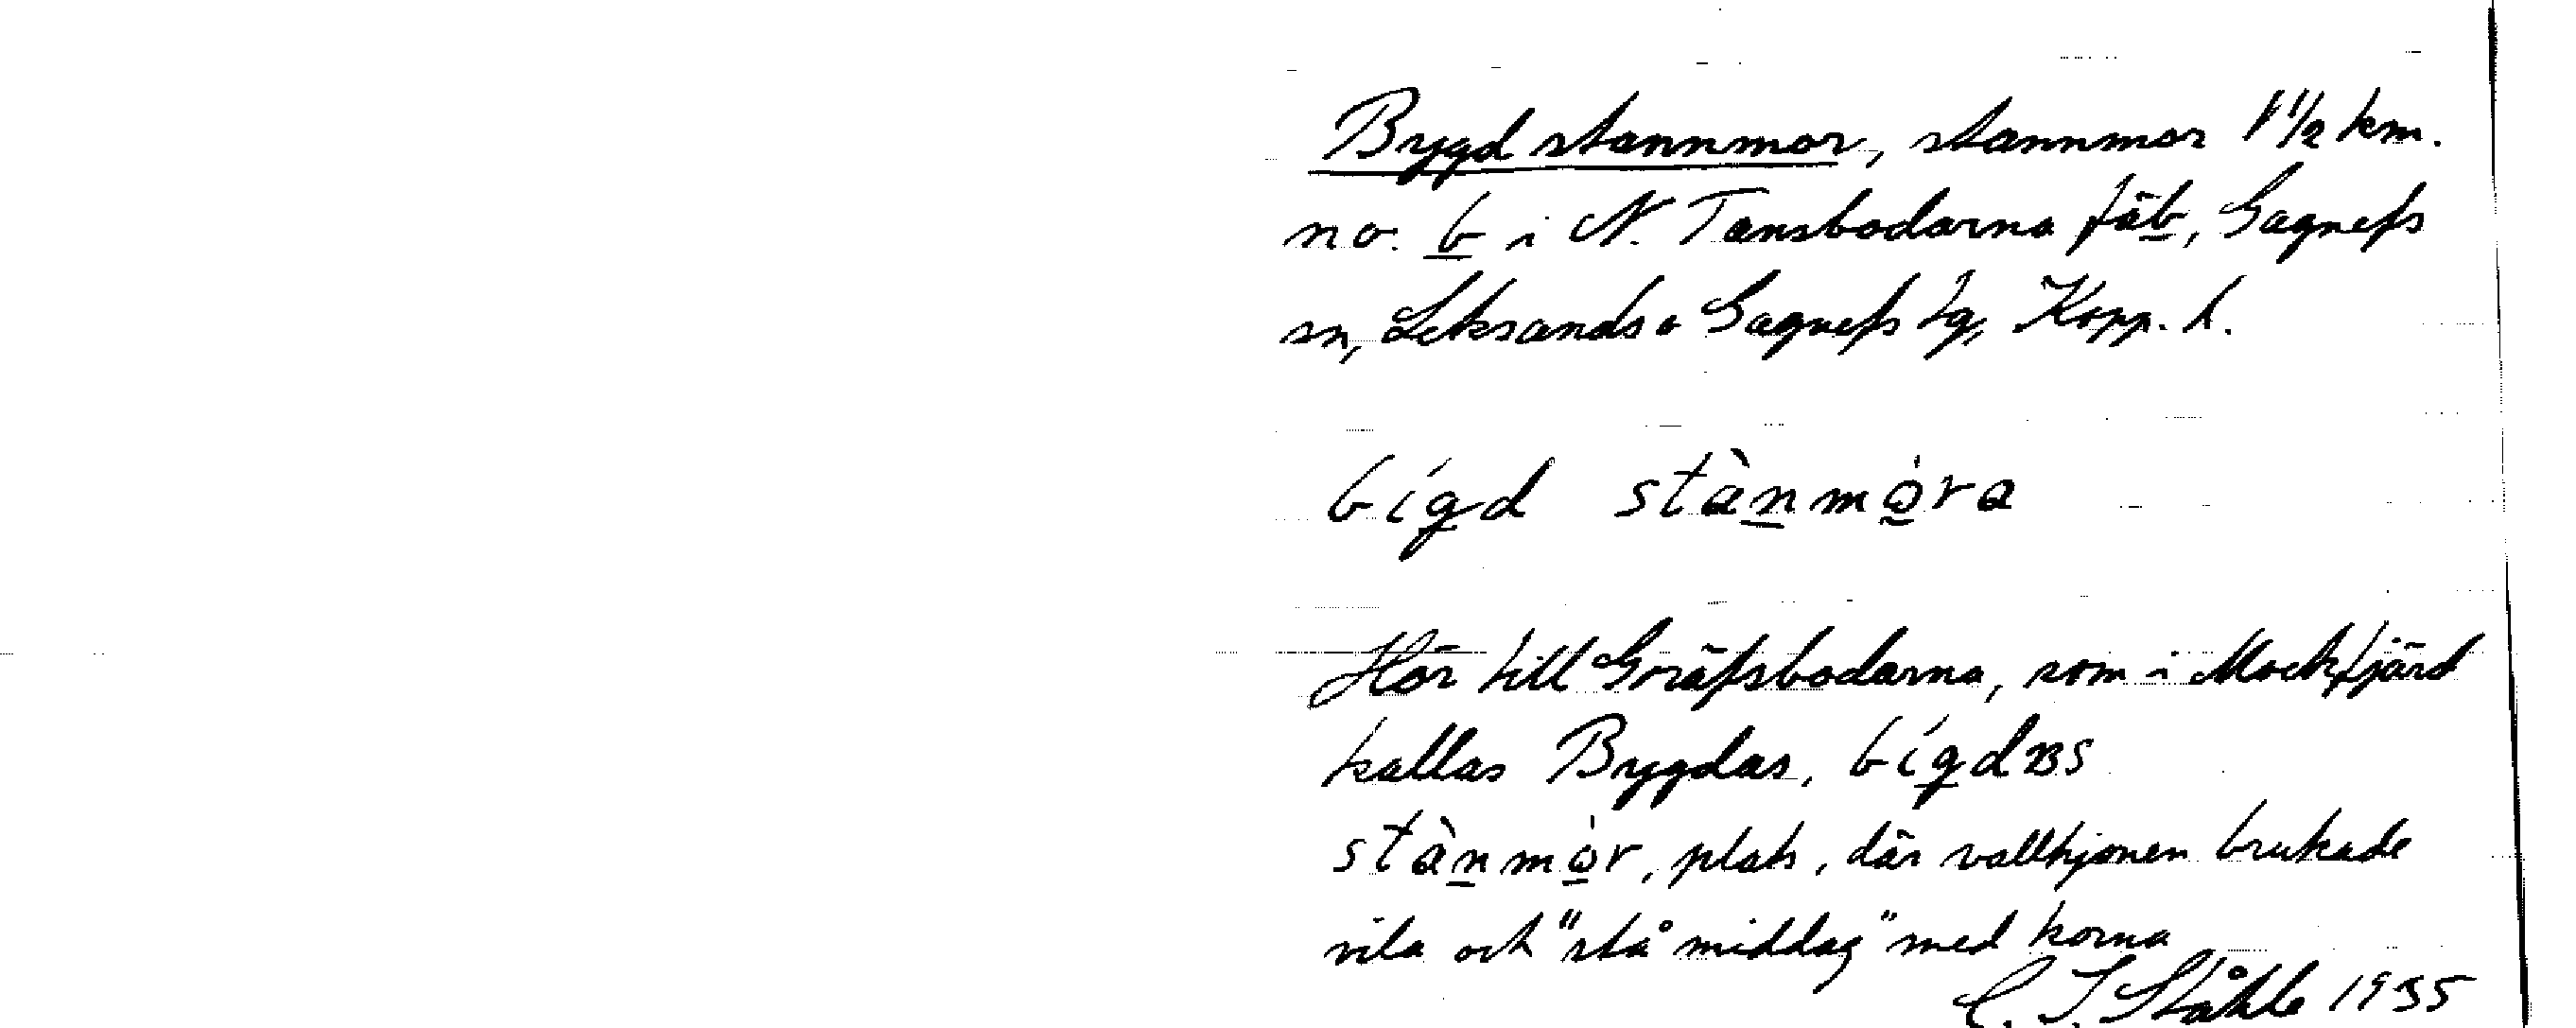 Bygd stannmor, stannmor 1 1/2 km.
no. b i N. Tansbodarna fäb, Gagnefs
sn, Leksands o Gagnefs tg, Kopp. l.
bígd stànmòra
Hör till Gräfsbodarna, som i Mockfjärd
kallas Bygdas, bígdas
stànmòr, plats, där vallhjonen brukade
vila och "stå middag" med korna
C. I. Ståhle 1935